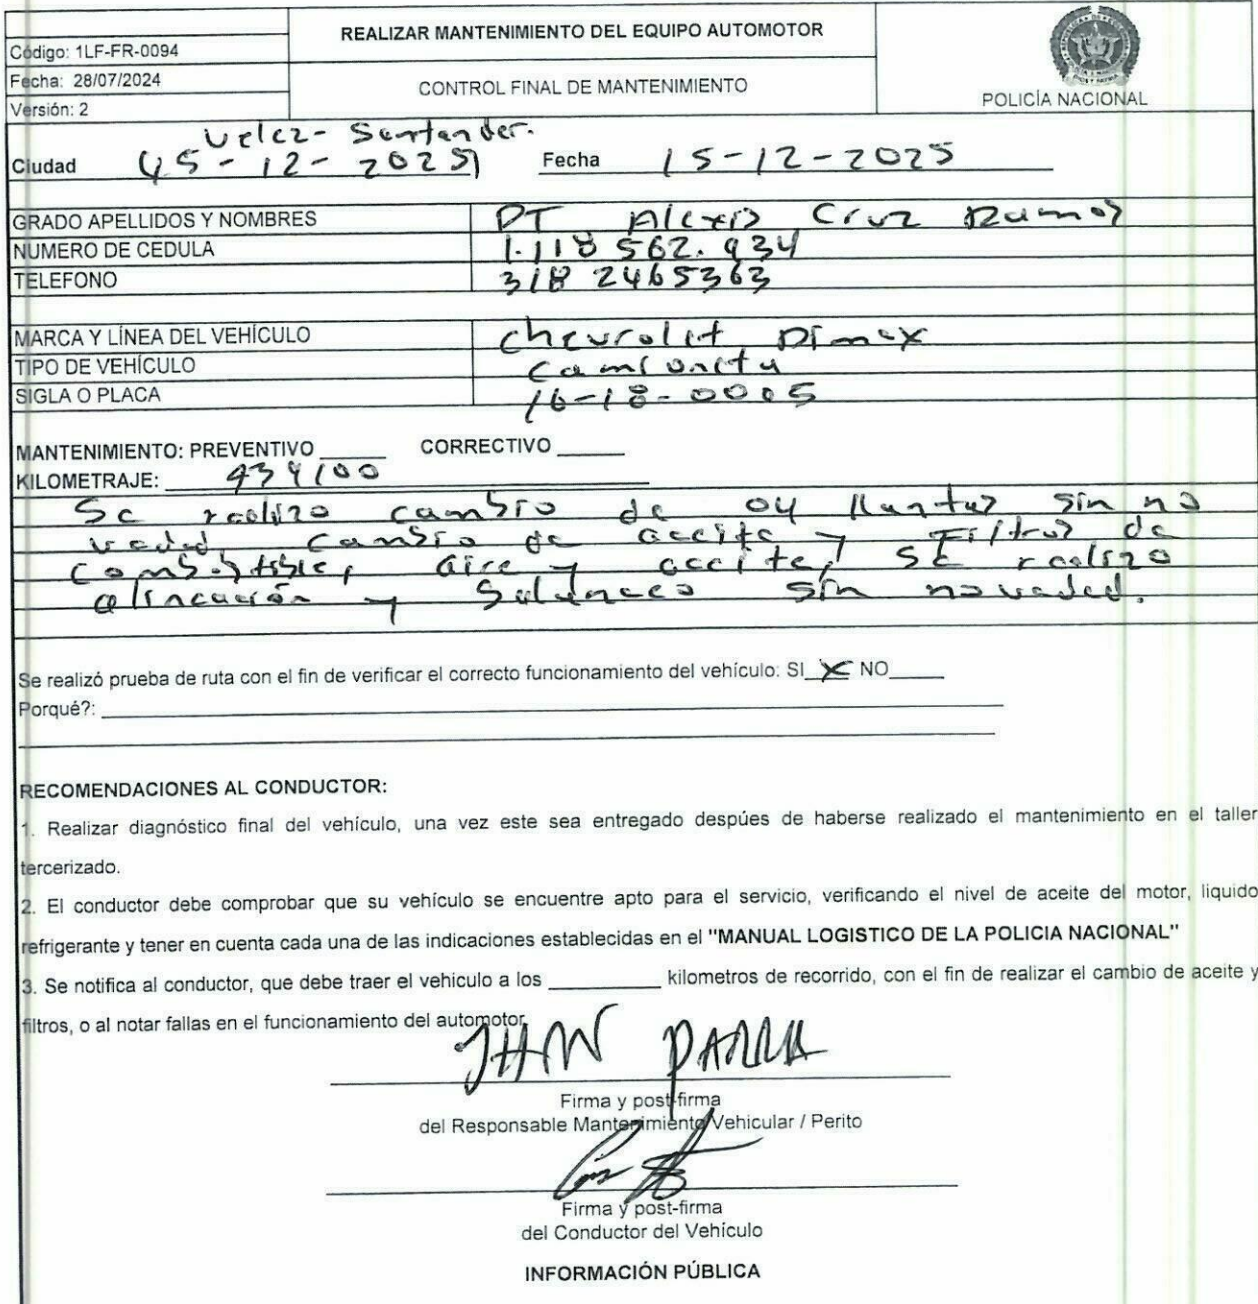 REALIZAR MANTENIMIENTO DEL EQUIPO AUTOMOTOR
Código: 1LF-FR-0094
Fecha: 28/07/2024
CONTROL FINAL DE MANTENIMIENTO
Versión: 2
POLICÍA NACIONAL
Velez- Santander.
Ciudad (15-12-2025) Fecha 15-12-2025
GRADO APELLIDOS Y NOMBRES PT Alexis Cruz Ramos
NUMERO DE CEDULA 1.118 562.934
TELEFONO 318 2465363
MARCA Y LÍNEA DEL VEHÍCULO chevrolet Dimax
TIPO DE VEHÍCULO Camioneta
SIGLA O PLACA 16-18-0005
MANTENIMIENTO: PREVENTIVO ______ CORRECTIVO ______
KILOMETRAJE: 434100
Se realizo cambio de 04 llantas sin no
vedad, cambio de aceite y Filtros de
combustible, aire y aceite, se realizo
alineación y balanceo sin novedad.
Se realizó prueba de ruta con el fin de verificar el correcto funcionamiento del vehículo: SI X NO_____
Porqué?:
RECOMENDACIONES AL CONDUCTOR:
1. Realizar diagnóstico final del vehículo, una vez este sea entregado despúes de haberse realizado el mantenimiento en el taller
tercerizado.
2. El conductor debe comprobar que su vehículo se encuentre apto para el servicio, verificando el nivel de aceite del motor, liquido
refrigerante y tener en cuenta cada una de las indicaciones establecidas en el "MANUAL LOGISTICO DE LA POLICIA NACIONAL"
3. Se notifica al conductor, que debe traer el vehiculo a los __________ kilometros de recorrido, con el fin de realizar el cambio de aceite y
filtros, o al notar fallas en el funcionamiento del automotor
JHN PARRA
Firma y post-firma
del Responsable Mantenimiento Vehicular / Perito
Firma y post-firma
del Conductor del Vehículo
INFORMACIÓN PÚBLICA